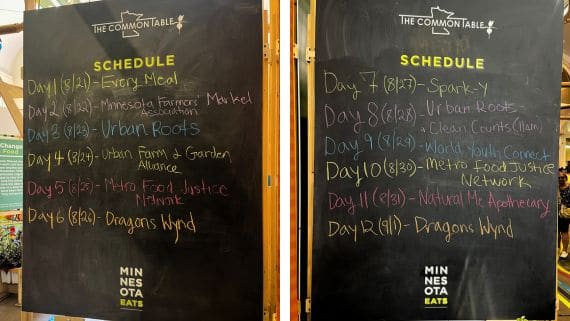 THE COMMON TABLE
SCHEDULE
Day 1 (8/21) - Every Meal
Day 2 (8/22) - Minnesota Farmers' Market
Association
Day 3 (8/23) - Urban Roots
Day 4 (8/24) - Urban Farm & Garden
Alliance
Day 5 (8/25) - Metro Food Justice
Network
Day 6 (8/26) - Dragons Wynd
MIN
NES
OTA
EATS
Change
Food
THE COMMON TABLE
SCHEDULE
Day 7 (8/27) - Spark-Y
Day 8 (8/28) - Urban Roots
Clean Counts (11am)
Day 9 (8/29) - World Youth Connect
Day 10 (8/30) - Metro Food Justice
Network
Day 11 (8/31) - Natural Me Apothecary
Day 12 (9/1) - Dragons Wynd
MIN
NES
OTA
EATS